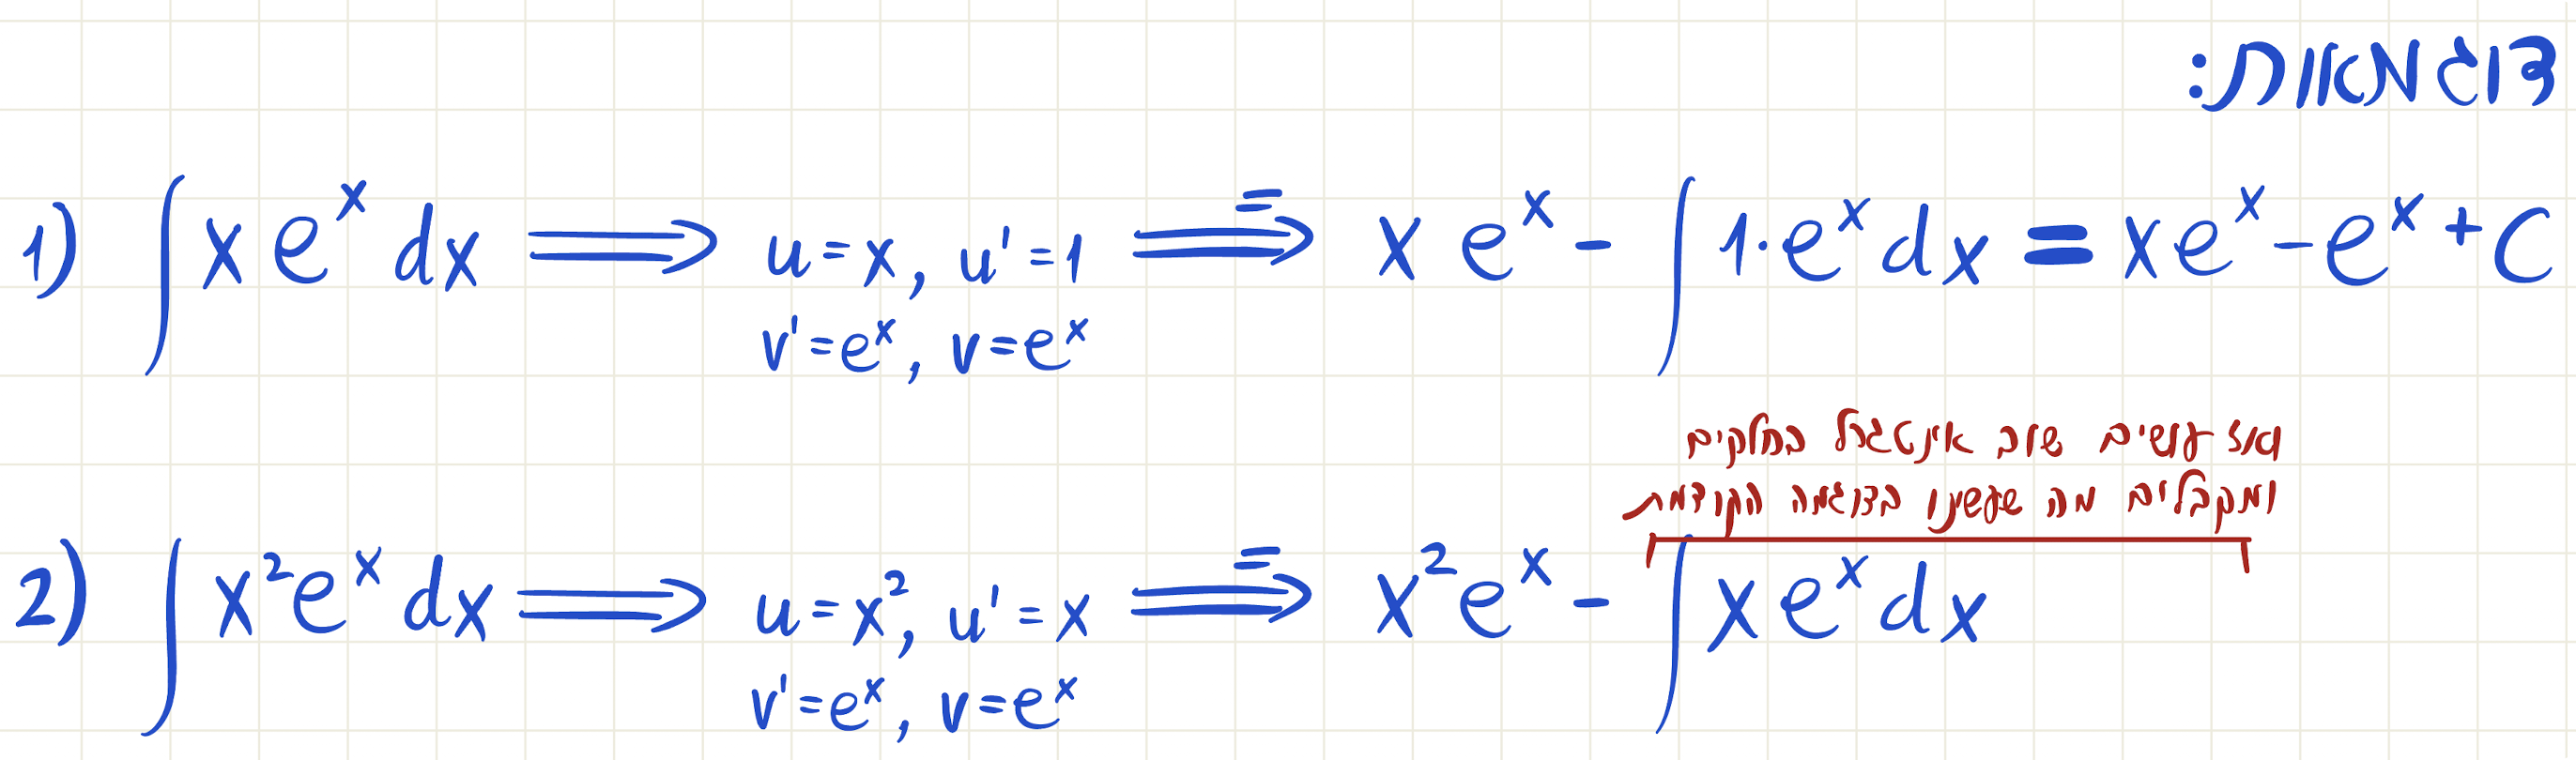 דוגמאות:
1) ∫ x e^x dx ⟹ u = x, u' = 1 =⟹ x e^x - ∫ 1·e^x dx = x e^x - e^x + C
v' = e^x, v = e^x
ואז עושים שוב אינטגרל בחלקים
ומקבלים מה שעשינו בדוגמה הקודמת
2) ∫ x² e^x dx ⟹ u = x², u' = x =⟹ x² e^x - ∫ x e^x dx
v' = e^x, v = e^x